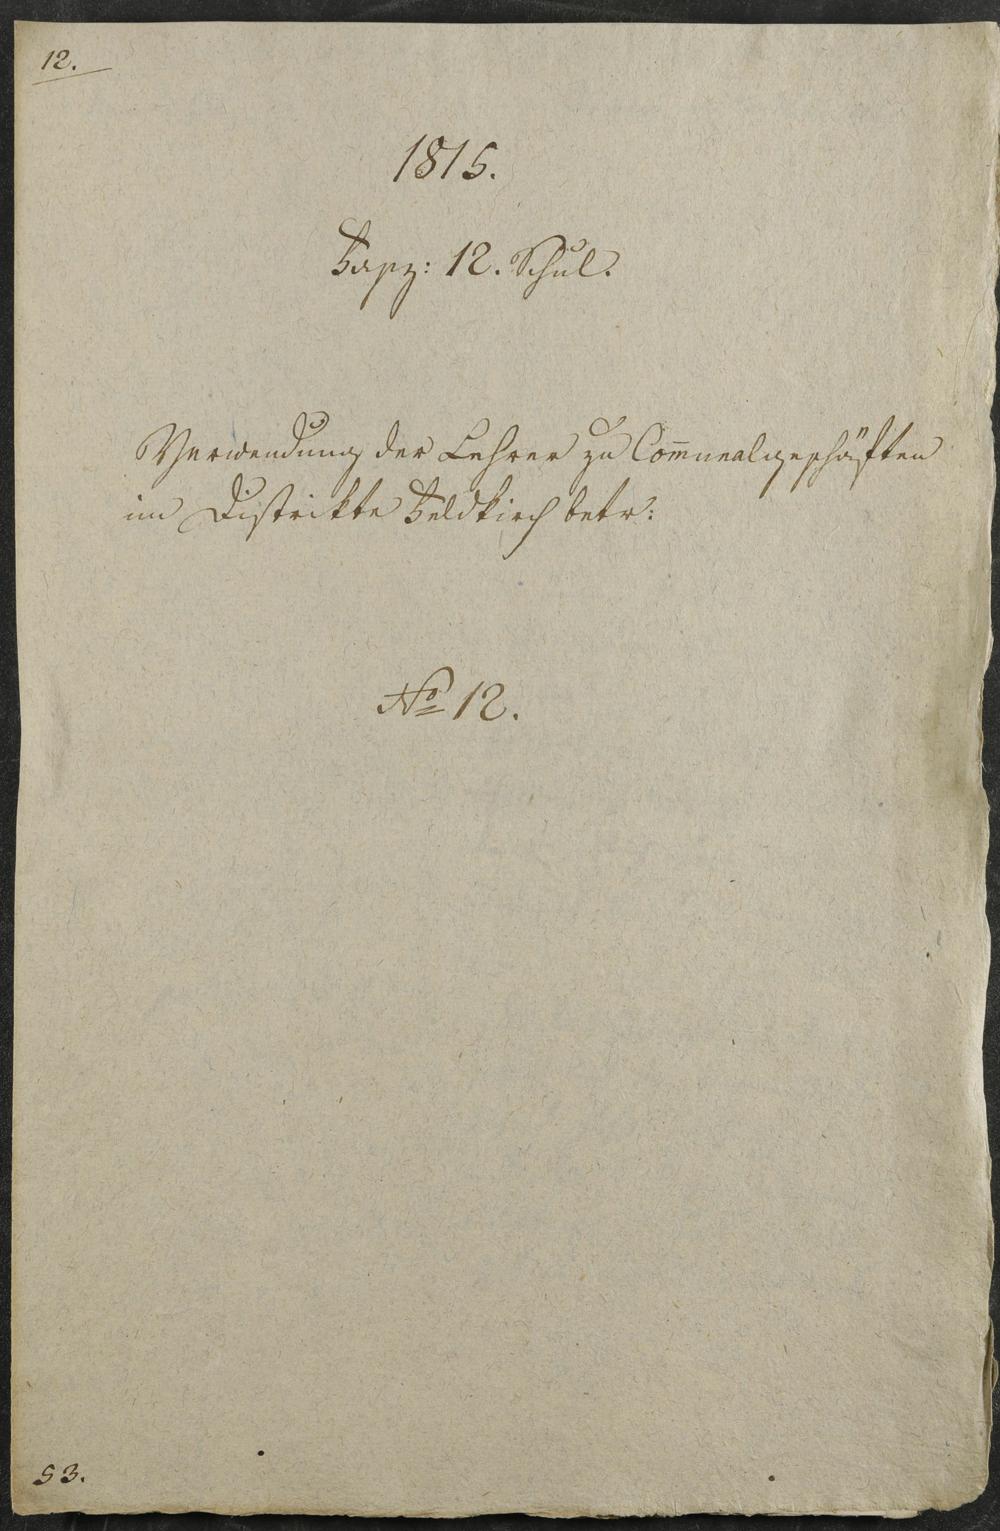 12.
1815.
Fasz: 12. Schul.
Verwendung der Lehrer zu Com̅unalgeschäften
im Distrikte Feldkirch betr:
No 12.
53.